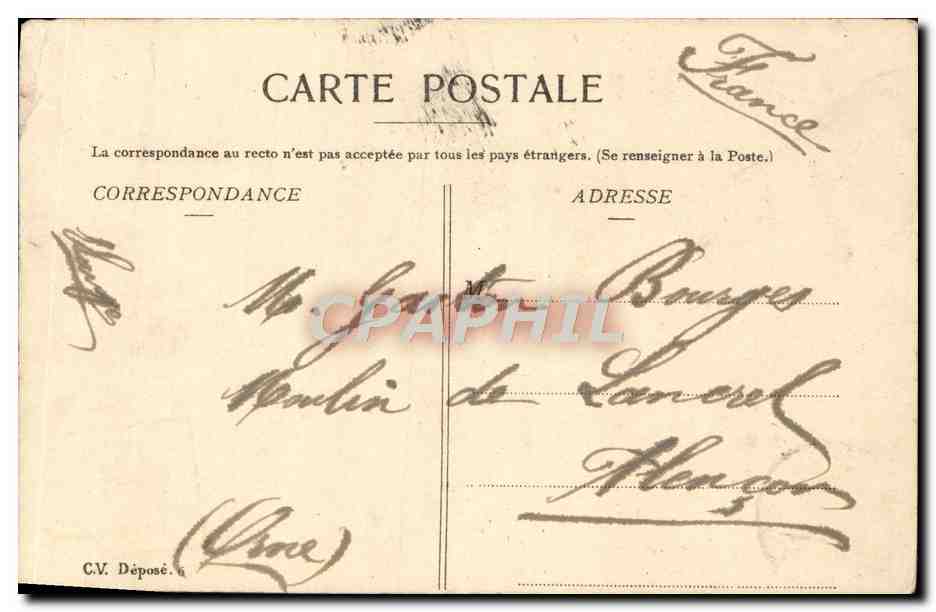 France
CARTE POSTALE
La correspondance au recto n'est pas acceptée par tous les pays étrangers. (Se renseigner à la Poste.)
CORRESPONDANCE
ADRESSE
M. Gaston Bourges
M
CPAPHIL
Moulin de Lancrel
Alençon
(Orne)
C.V. Déposé. 6